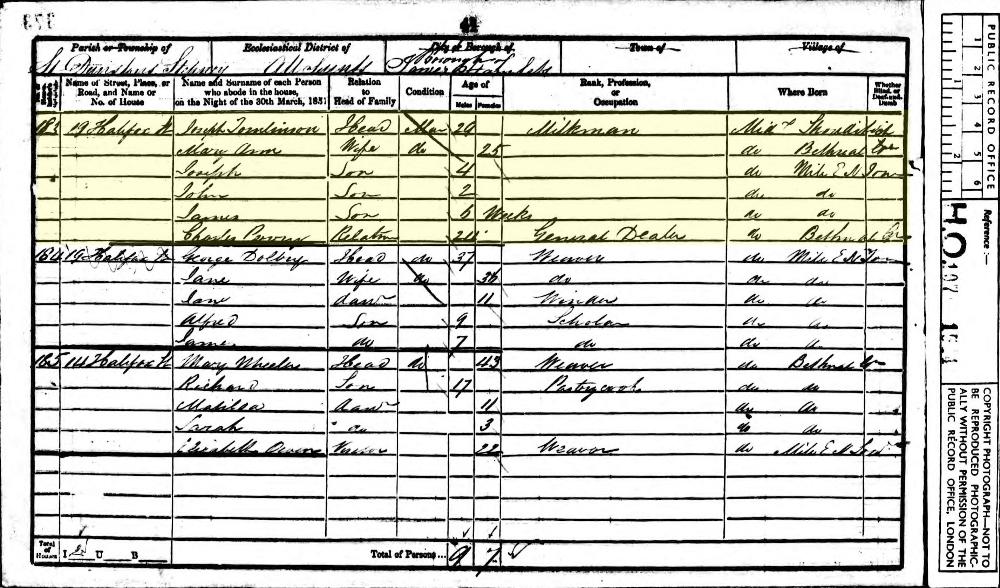 41
Parish or Township of Ecclesiastical District of City or Borough of Town of Village of
Borough of
Tower Hamlets
Name of Street, Place, or Road, and Name or No. of House
Name and Surname of each Person who abode in the house, on the Night of the 30th March, 1851
Relation to Head of Family
Condition
Age of
Males Females
Rank, Profession, or Occupation
Where Born
Whether Blind, or Deaf-and-Dumb
19 Halifax St Joseph Tomlinson Head Mar 29 Milkman Midx Shoreditch
Mary Ann Wife do 25 do Bethnal Grn
Joseph Son 4 do Mile E N Town
John Son 2 do do
James Son 6 Weeks do do
Charles Relation General Dealer do Bethnal Grn
184 19 Halifax St George Dolbey Head do 37 Weaver do Mile E N Tn
Jane Wife do 36 do do do
Jane Daur 11 Winder do do
Alfred Son 9 Scholar do do
James do 7 do do do
185 14 Halifax St Mary Wheeler Head 43 Weaver do Bethnal Gr
Richard Son 17 Pastrycook do do
Matilda Daur 11 do do
Sarah do 3 do do
Elizabeth 22 Weaver do Mile E N Town
Total of Houses I 2 U B Total of Persons... 9 7
PUBLIC RECORD OFFICE
1 2 3 4 5 6
1 2
Reference:-
H.O. 107
COPYRIGHT PHOTOGRAPH—NOT TO BE REPRODUCED PHOTOGRAPHICALLY WITHOUT PERMISSION OF THE PUBLIC RECORD OFFICE, LONDON